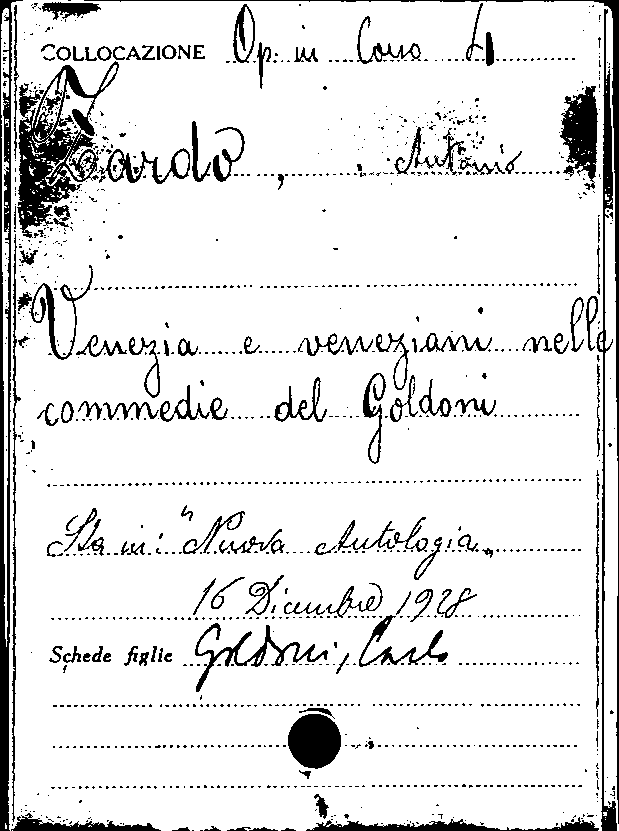 COLLOCAZIONE Op. in Corso 4
Zardo, Antonio
Venezia e veneziani nelle
commedie del Goldoni
Sta in: "Nuova Antologia"
16 Dicembre 1928
Schede figlie Goldoni, Carlo